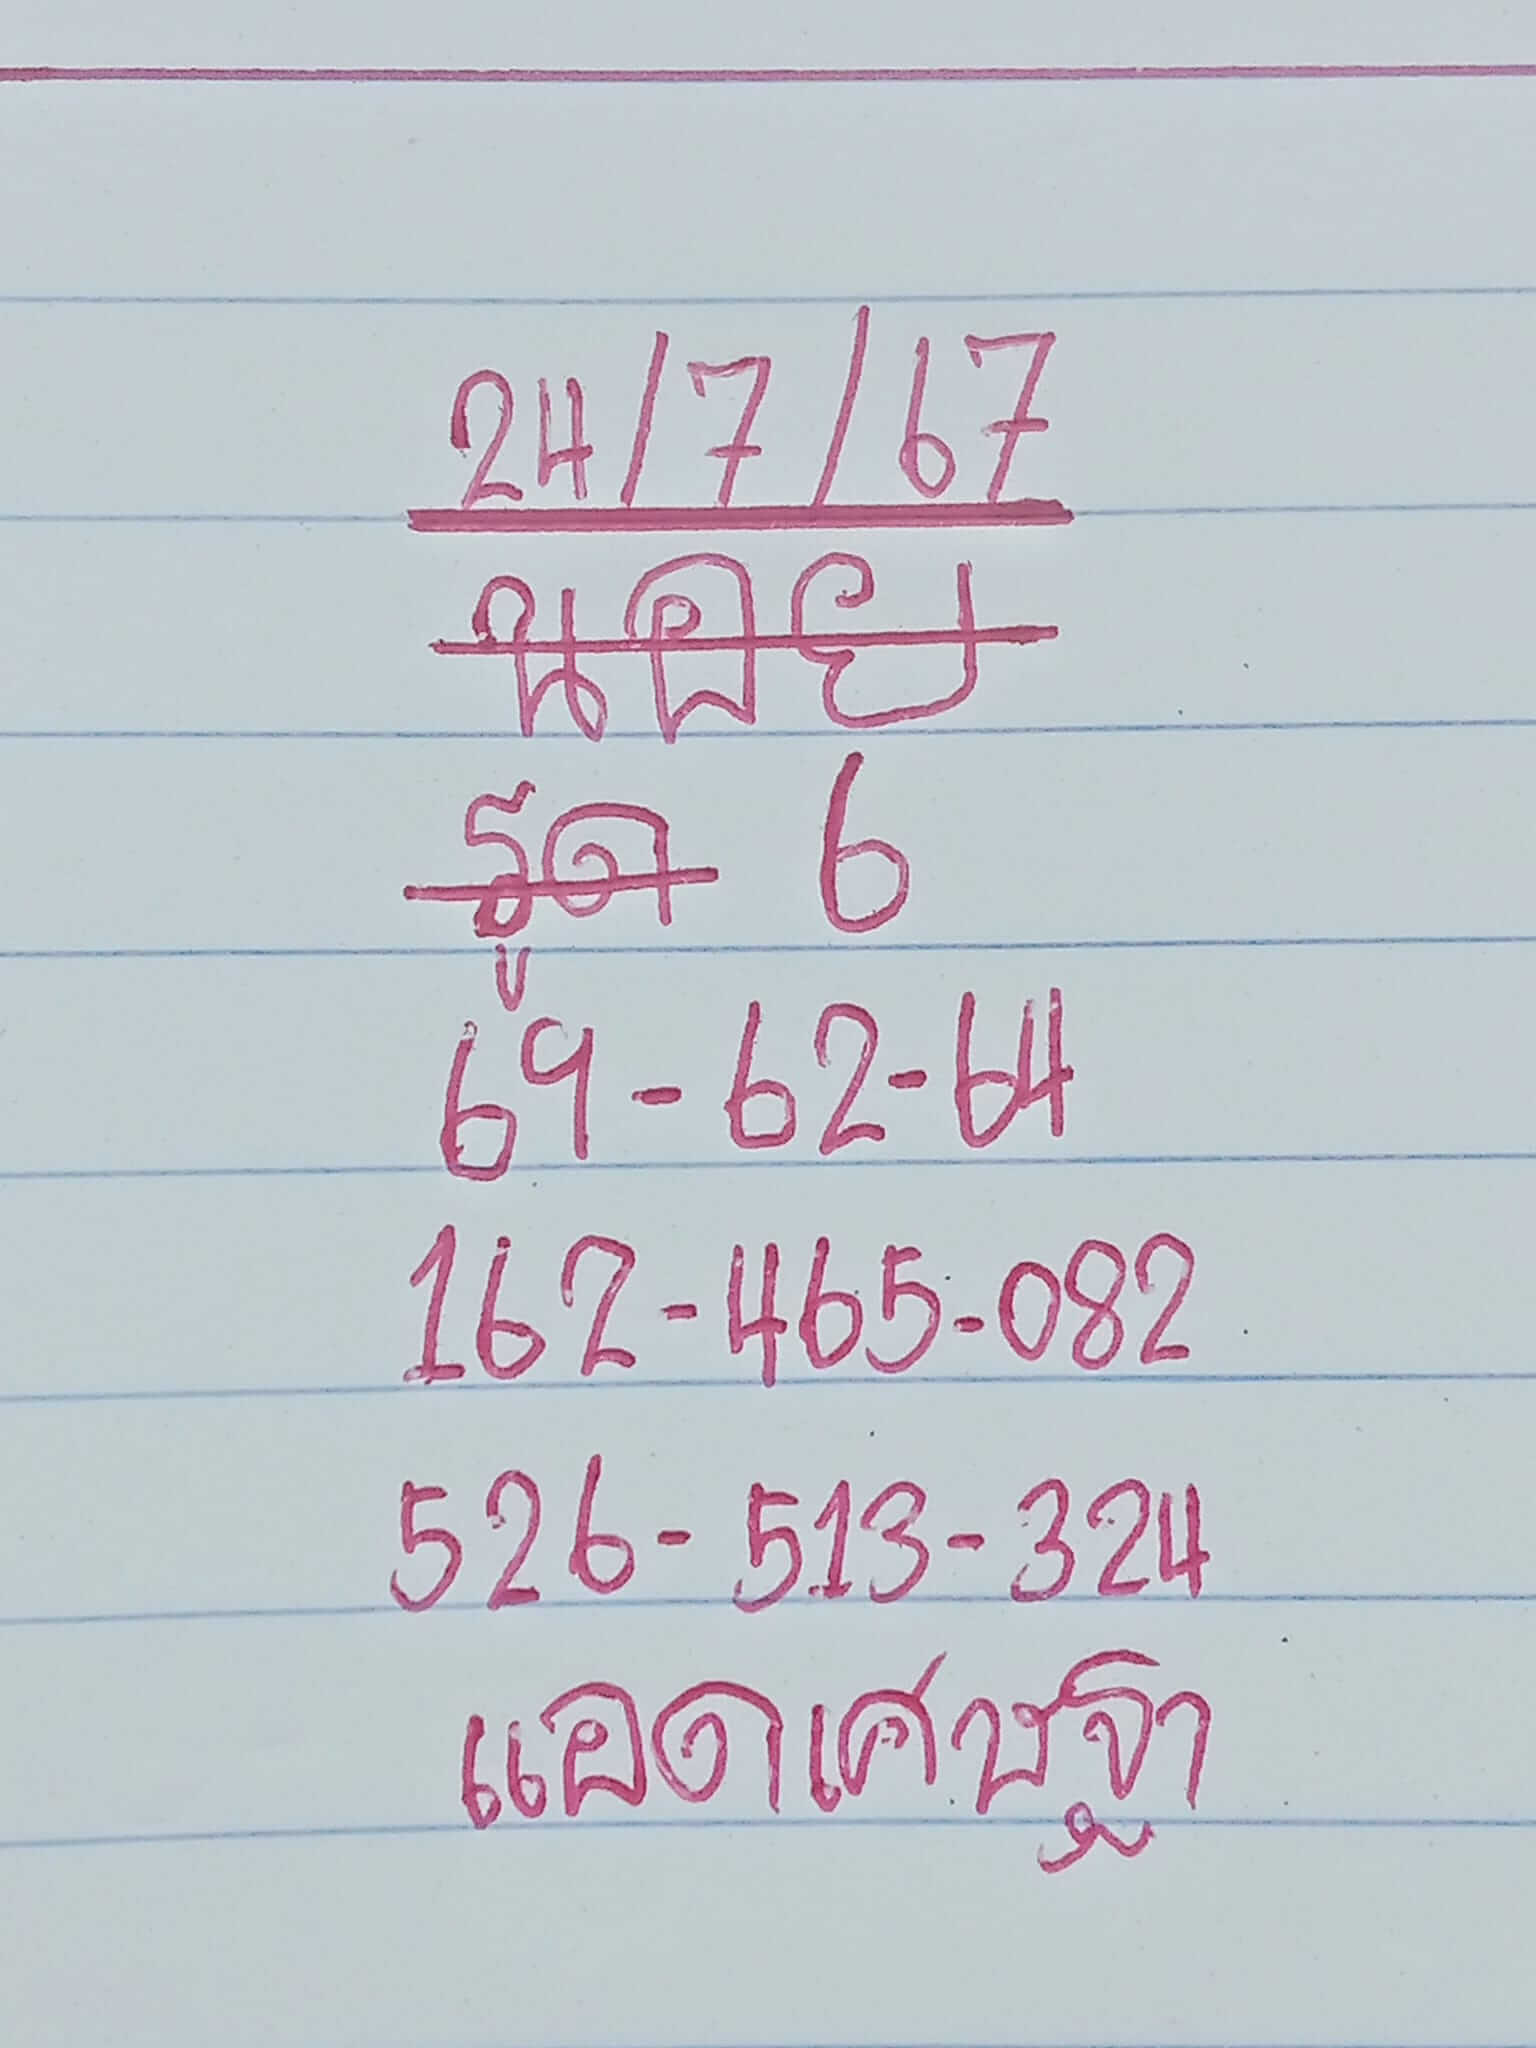 24/7/67
นอย
รูด 6
69-62-64
162-465-082
526-513-324
แอดเศษฐา